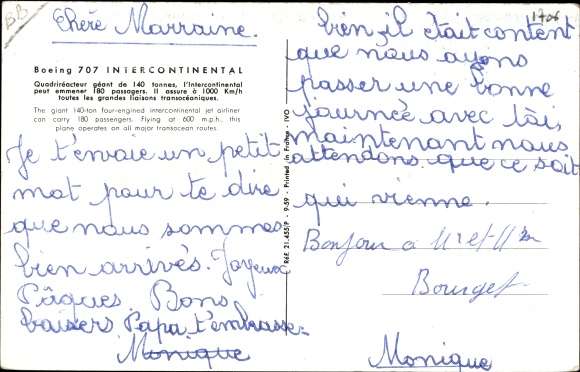 BB
1706
Chère Marraine.
Boeing 707 INTERCONTINENTAL
Quadriréacteur géant de 140 tonnes, l'Intercontinental
peut emmener 180 passagers. Il assure à 1000 Km/h
toutes les grandes liaisons transocéaniques.
The giant 140-ton four-engined intercontinental jet airliner
can carry 180 passengers. Flying at 600 m.p.h., this
plane operates on all major transocean routes.
Je t'envoie un petit
mot pour te dire
que nous sommes
bien arrivés. Joyeuses
Pâques. Bons
baisers Papa t'embrasse.
Monique
Réf. 21.455/P - 9-59 - Printed in France - IVO
bien, il était content
que nous ayons
passer une bonne
journée avec toi,
maintenant nous
attendons que ce soit
qui vienne.
Bonjour a Mr et Mme
Bourget
Monique